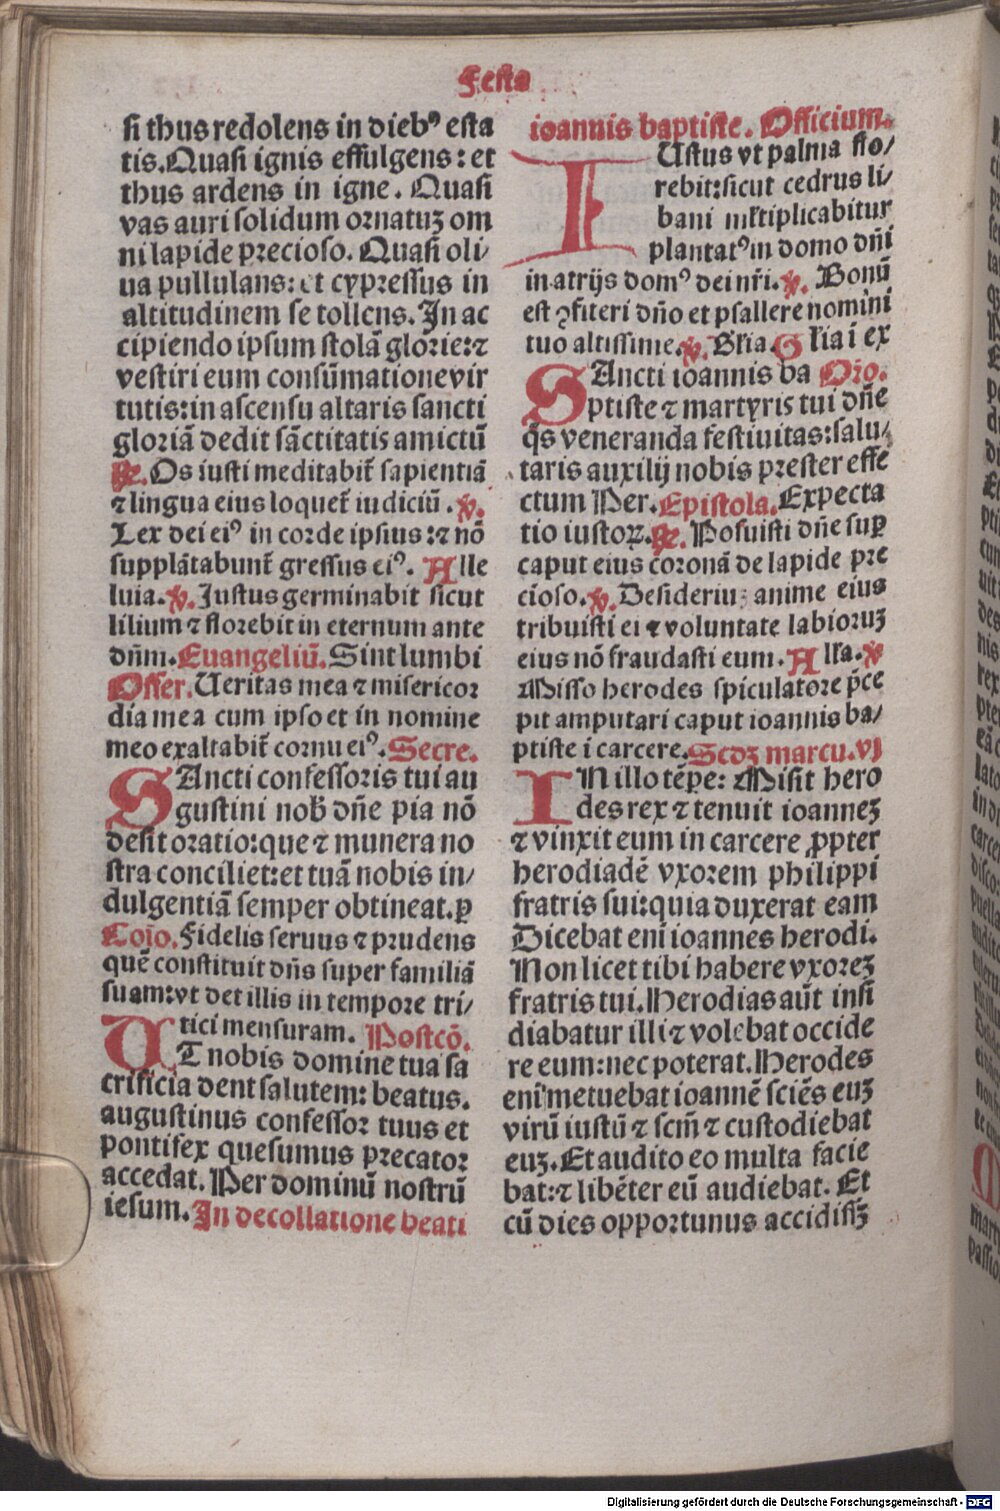 Festa
si thus redolens in diebꝰ esta
tis. Quasi ignis effulgens: et
thus ardens in igne. Quasi
vas auri solidum ornatuʒ om
ni lapide precioso. Quasi oli/
ua pullulans: et cypressus in
altitudinem se tollens. In ac
cipiendo ipsum stolā glorie: ⁊
vestiri eum consūmatione vir
tutis: in ascensu altaris sancti
gloriā dedit sāctitatis amictū
℟. Os iusti meditabit̄ sapientiā
⁊ lingua eius loquet̄ iudiciū. ℣.
Lex dei eiꝰ in corde ipsius: ⁊ nō
supplātabunt̄ gressus eiꝰ. Alle
luia. ℣. Justus germinabit sicut
lilium ⁊ florebit in eternum ante
dn̄m. Euangeliū. Sint lumbi
Offer. Ueritas mea ⁊ misericor
dia mea cum ipso et in nomine
meo exaltabit̄ cornu eiꝰ. Secre.
SAncti confessoris tui au
gustini nob̄ dn̄e pia nō
desit oratio: que ⁊ munera no
stra conciliet: et tuā nobis in/
dulgentiā semper obtineat. ꝑ
Coīo. Fidelis seruus ⁊ prudens
quē constituit dn̄s super familiā
suam: vt det illis in tempore tri/
tici mensuram. Postcō.
UT nobis domine tua sa
crificia dent salutem: beatus.
augustinus confessor tuus et
pontifex quesumus precator
accedat. Per dominū nostrū
iesum. In decollatione beati
ioannis baptiste. Officium.
IUstus vt palma flo/
rebit: sicut cedrus li/
bani mltiplicabitur
plantatꝰ in domo dn̄i
in atrijs domꝰ dei nr̄i. ℣. Bonū
est ꝯfiteri dn̄o et psallere nomini
tuo altissime. ℣. Gl̄ia. Gl̄ia i ex
SAncti ioannis ba Orō.
ptiste ⁊ martyris tui dn̄e
q̄s veneranda festiuitas: salu/
taris auxilij nobis prester effe
ctum Per. Epistola. Expecta
tio iustoꝝ. ℟. Posuisti dn̄e suꝑ
caput eius coronā de lapide pre
cioso. ℣. Desideriuʒ anime eius
tribuisti ei ⁊ voluntate labioruʒ
eius nō fraudasti eum. All̄a. ℣
Misso herodes spiculatore p̄ce
pit amputari caput ioannis ba/
ptiste i carcere. Scdʒ marcu. vj
IN illo tēpe: Misit hero
des rex ⁊ tenuit ioanneʒ
⁊ vinxit eum in carcere ꝓpter
herodiadē vxorem philippi
fratris sui: quia duxerat eam
Dicebat enī ioannes herodi.
Non licet tibi habere vxoreʒ
fratris tui. Herodias aūt insi
diabatur illi ⁊ volebat occide
re eum: nec poterat. Herodes
enī metuebat ioannē sciēs euʒ
virū iustū ⁊ scm̄ ⁊ custodiebat
euʒ. Et audito eo multa facie
bat: ⁊ libēter eū audiebat. Et
cū dies opportunus accidissʒ
Digitalisierung gefördert durch die Deutsche Forschungsgemeinschaft - DFG